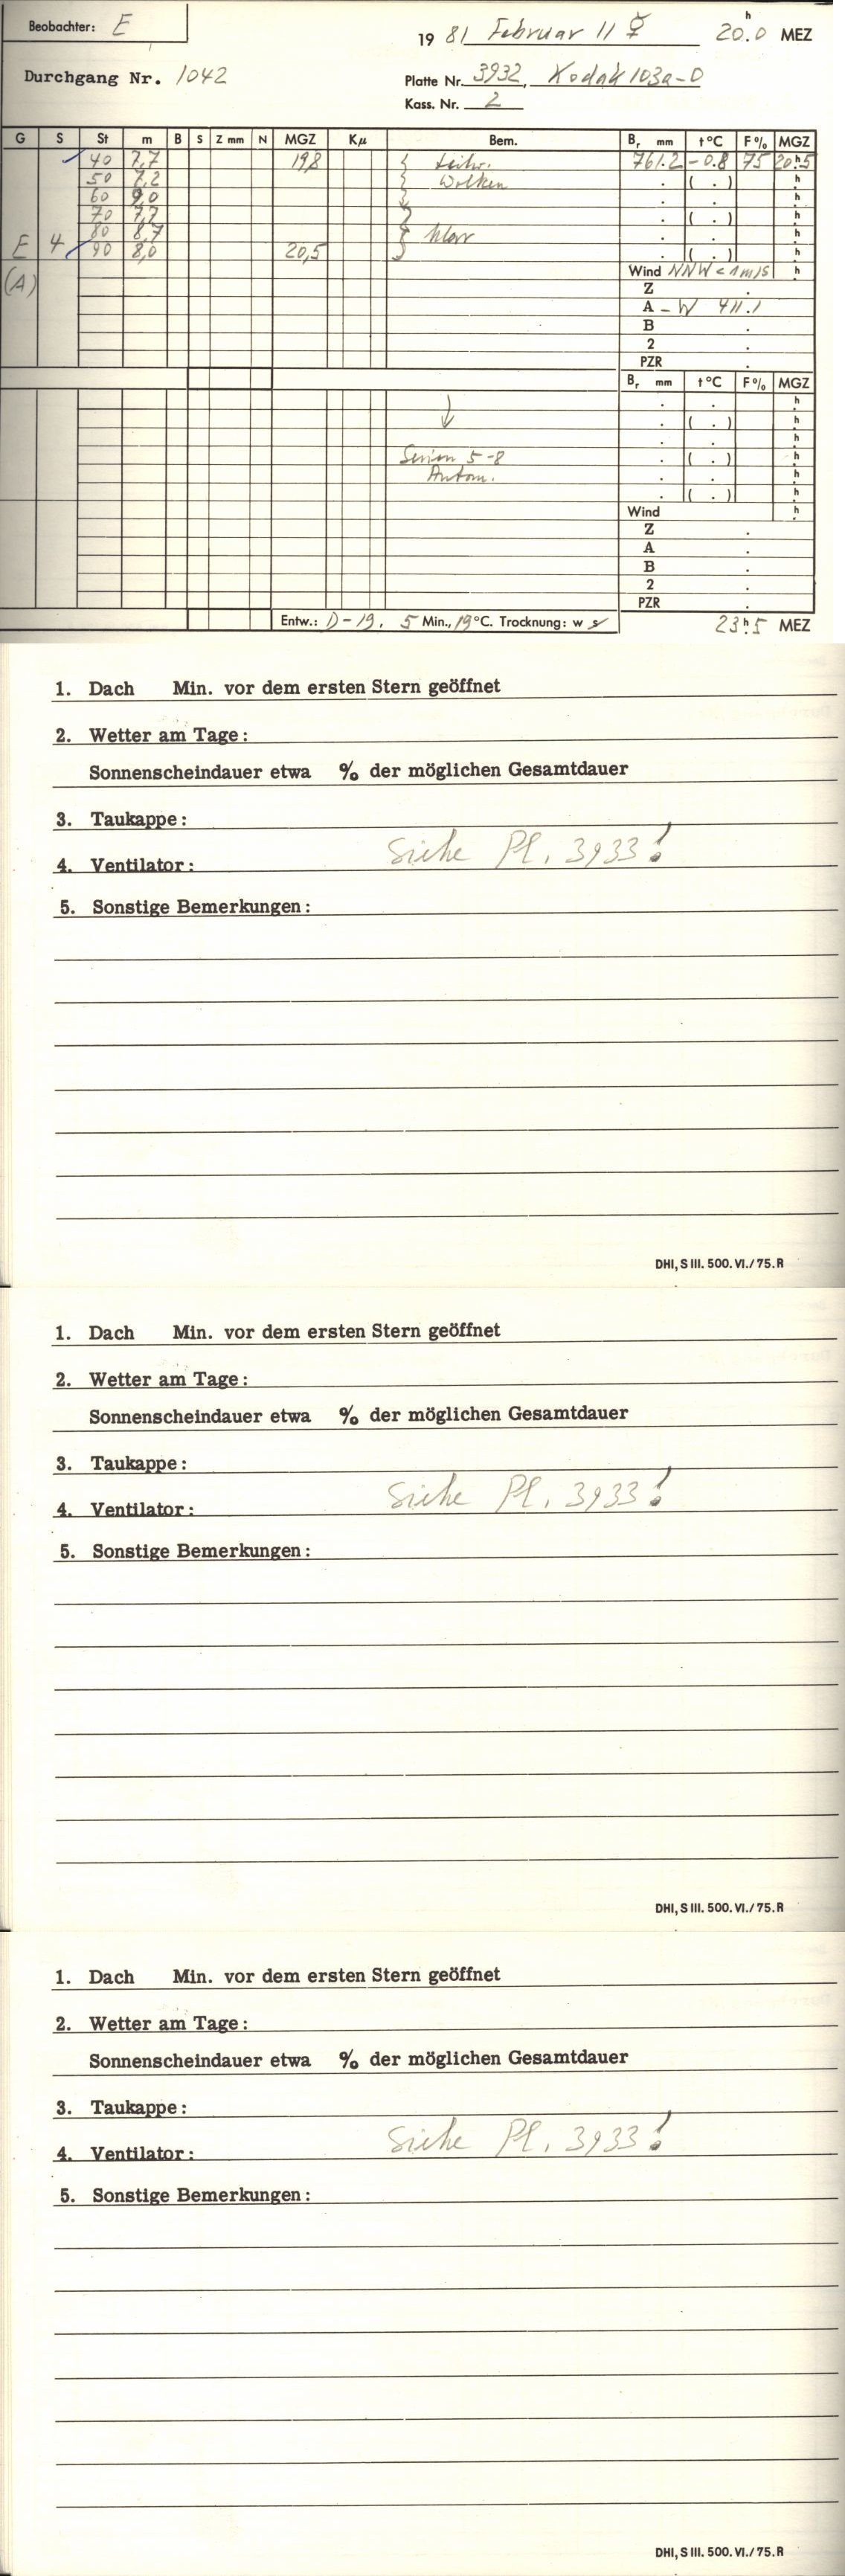 Beobachter: E
1981 Februar 11 ☿ 20.0 h MEZ
Durchgang Nr. 1042
Platte Nr. 3932, Kodak 103a-O
Kass. Nr. 2
G S St m B S Z mm N MGZ Kμ Bem. Br mm t°C F% MGZ
40 7,7 19,8 zeitw. 761.2 -0.8 75 20h5
50 7,2 Wolken . ( . ) h
60 9,0 . . h
70 7,7 . ( . ) h
80 8,7 klar . . h
E 4 90 8,0 20,5 . ( . ) h
(A) Wind NNW < 1m/s h
Z .
A - W 411.1
B .
2 .
PZR .
Br mm t°C F% MGZ
. . h
. ( . ) h
. . h
Serien 5-8 . ( . ) h
Autom. . . h
. ( . ) h
Wind h
Z .
A .
B .
2 .
PZR .
Entw.: D-19, 5 Min., 19°C. Trocknung: w s 23h.5 MEZ
1. Dach Min. vor dem ersten Stern geöffnet
2. Wetter am Tage:
Sonnenscheindauer etwa % der möglichen Gesamtdauer
3. Taukappe:
Siehe Pl. 3933!
4. Ventilator:
5. Sonstige Bemerkungen:
DHI, S III. 500. VI./75. R
1. Dach Min. vor dem ersten Stern geöffnet
2. Wetter am Tage:
Sonnenscheindauer etwa % der möglichen Gesamtdauer
3. Taukappe:
Siehe Pl. 3933!
4. Ventilator:
5. Sonstige Bemerkungen:
DHI, S III. 500. VI./75. R
1. Dach Min. vor dem ersten Stern geöffnet
2. Wetter am Tage:
Sonnenscheindauer etwa % der möglichen Gesamtdauer
3. Taukappe:
Siehe Pl. 3933!
4. Ventilator:
5. Sonstige Bemerkungen:
DHI, S III. 500. VI./75. R